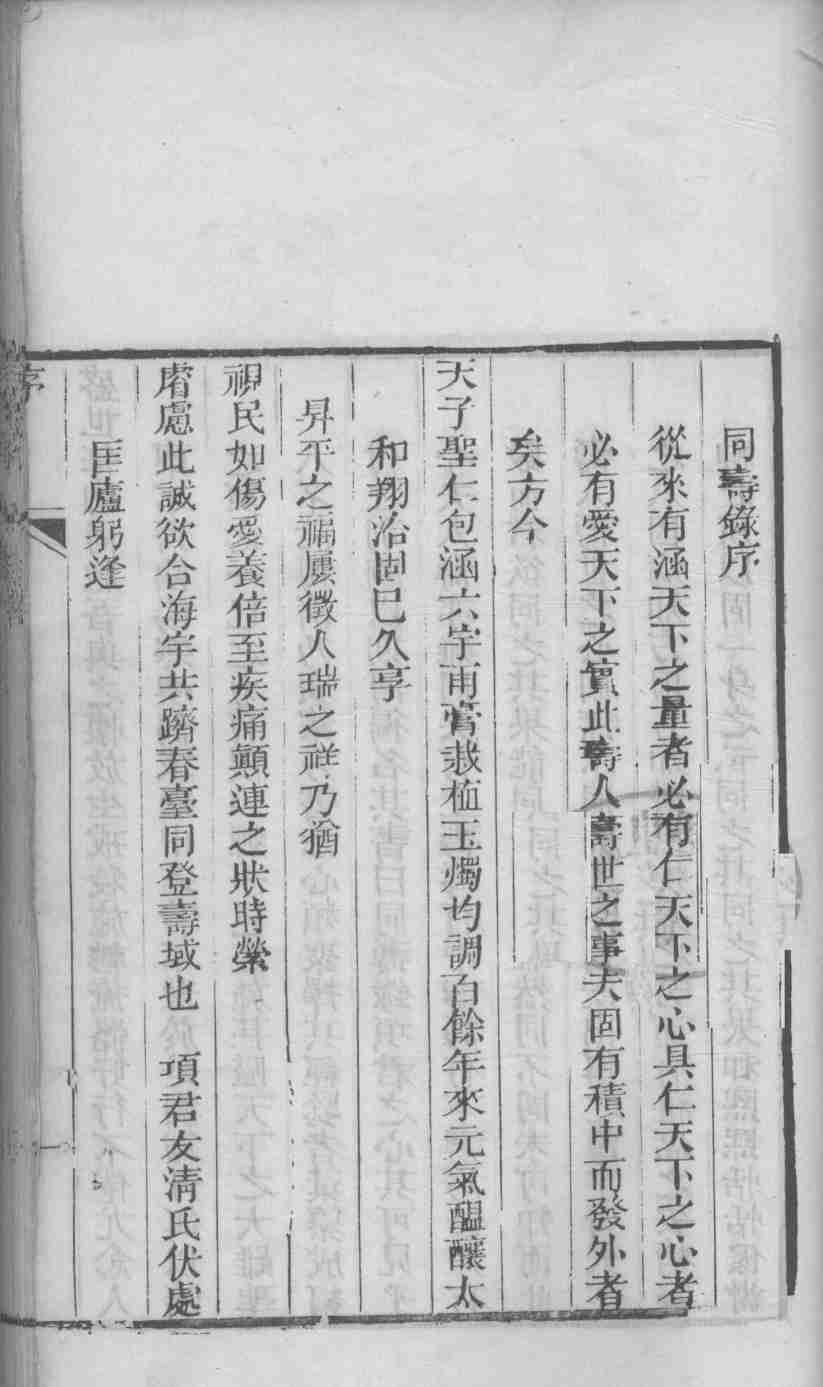 同壽錄序
從來有涵天下之量者必有仁天下之心具仁天下之心者
必有愛天下之實此壽人壽世之事夫固有積中而發外者
矣方今
天子聖仁包涵六宇雨膏栽植玉燭均調百餘年來元氣醞釀太
和翔洽固已久亨
昇平之福屢徵人瑞之祥乃猶
視民如傷愛養倍至疾痛顛連之狀時縈
睿慮此誠欲合海宇共躋春臺同登壽域也 項君友清氏伏處
匡廬躬逢
序
一